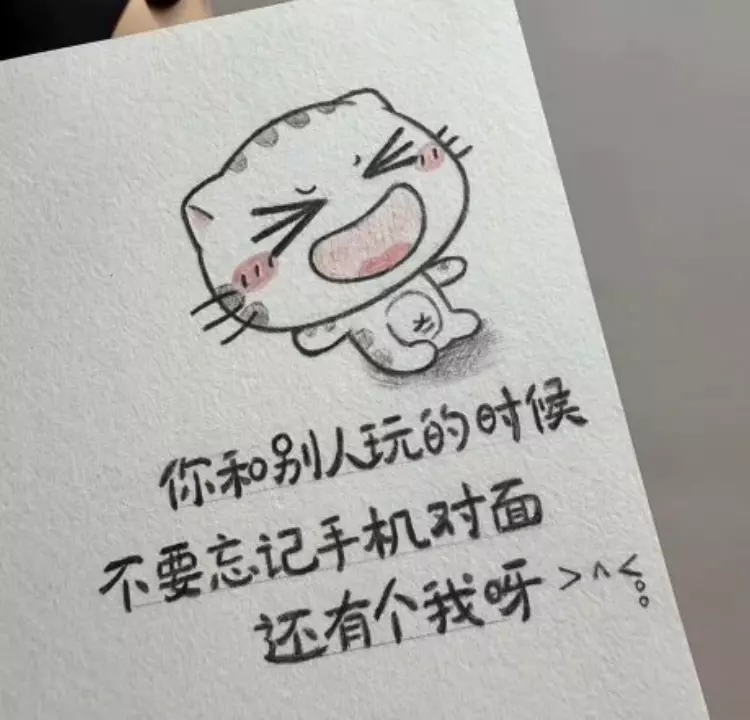 你和别人玩的时候
不要忘记手机对面
还有个我呀>^<。。